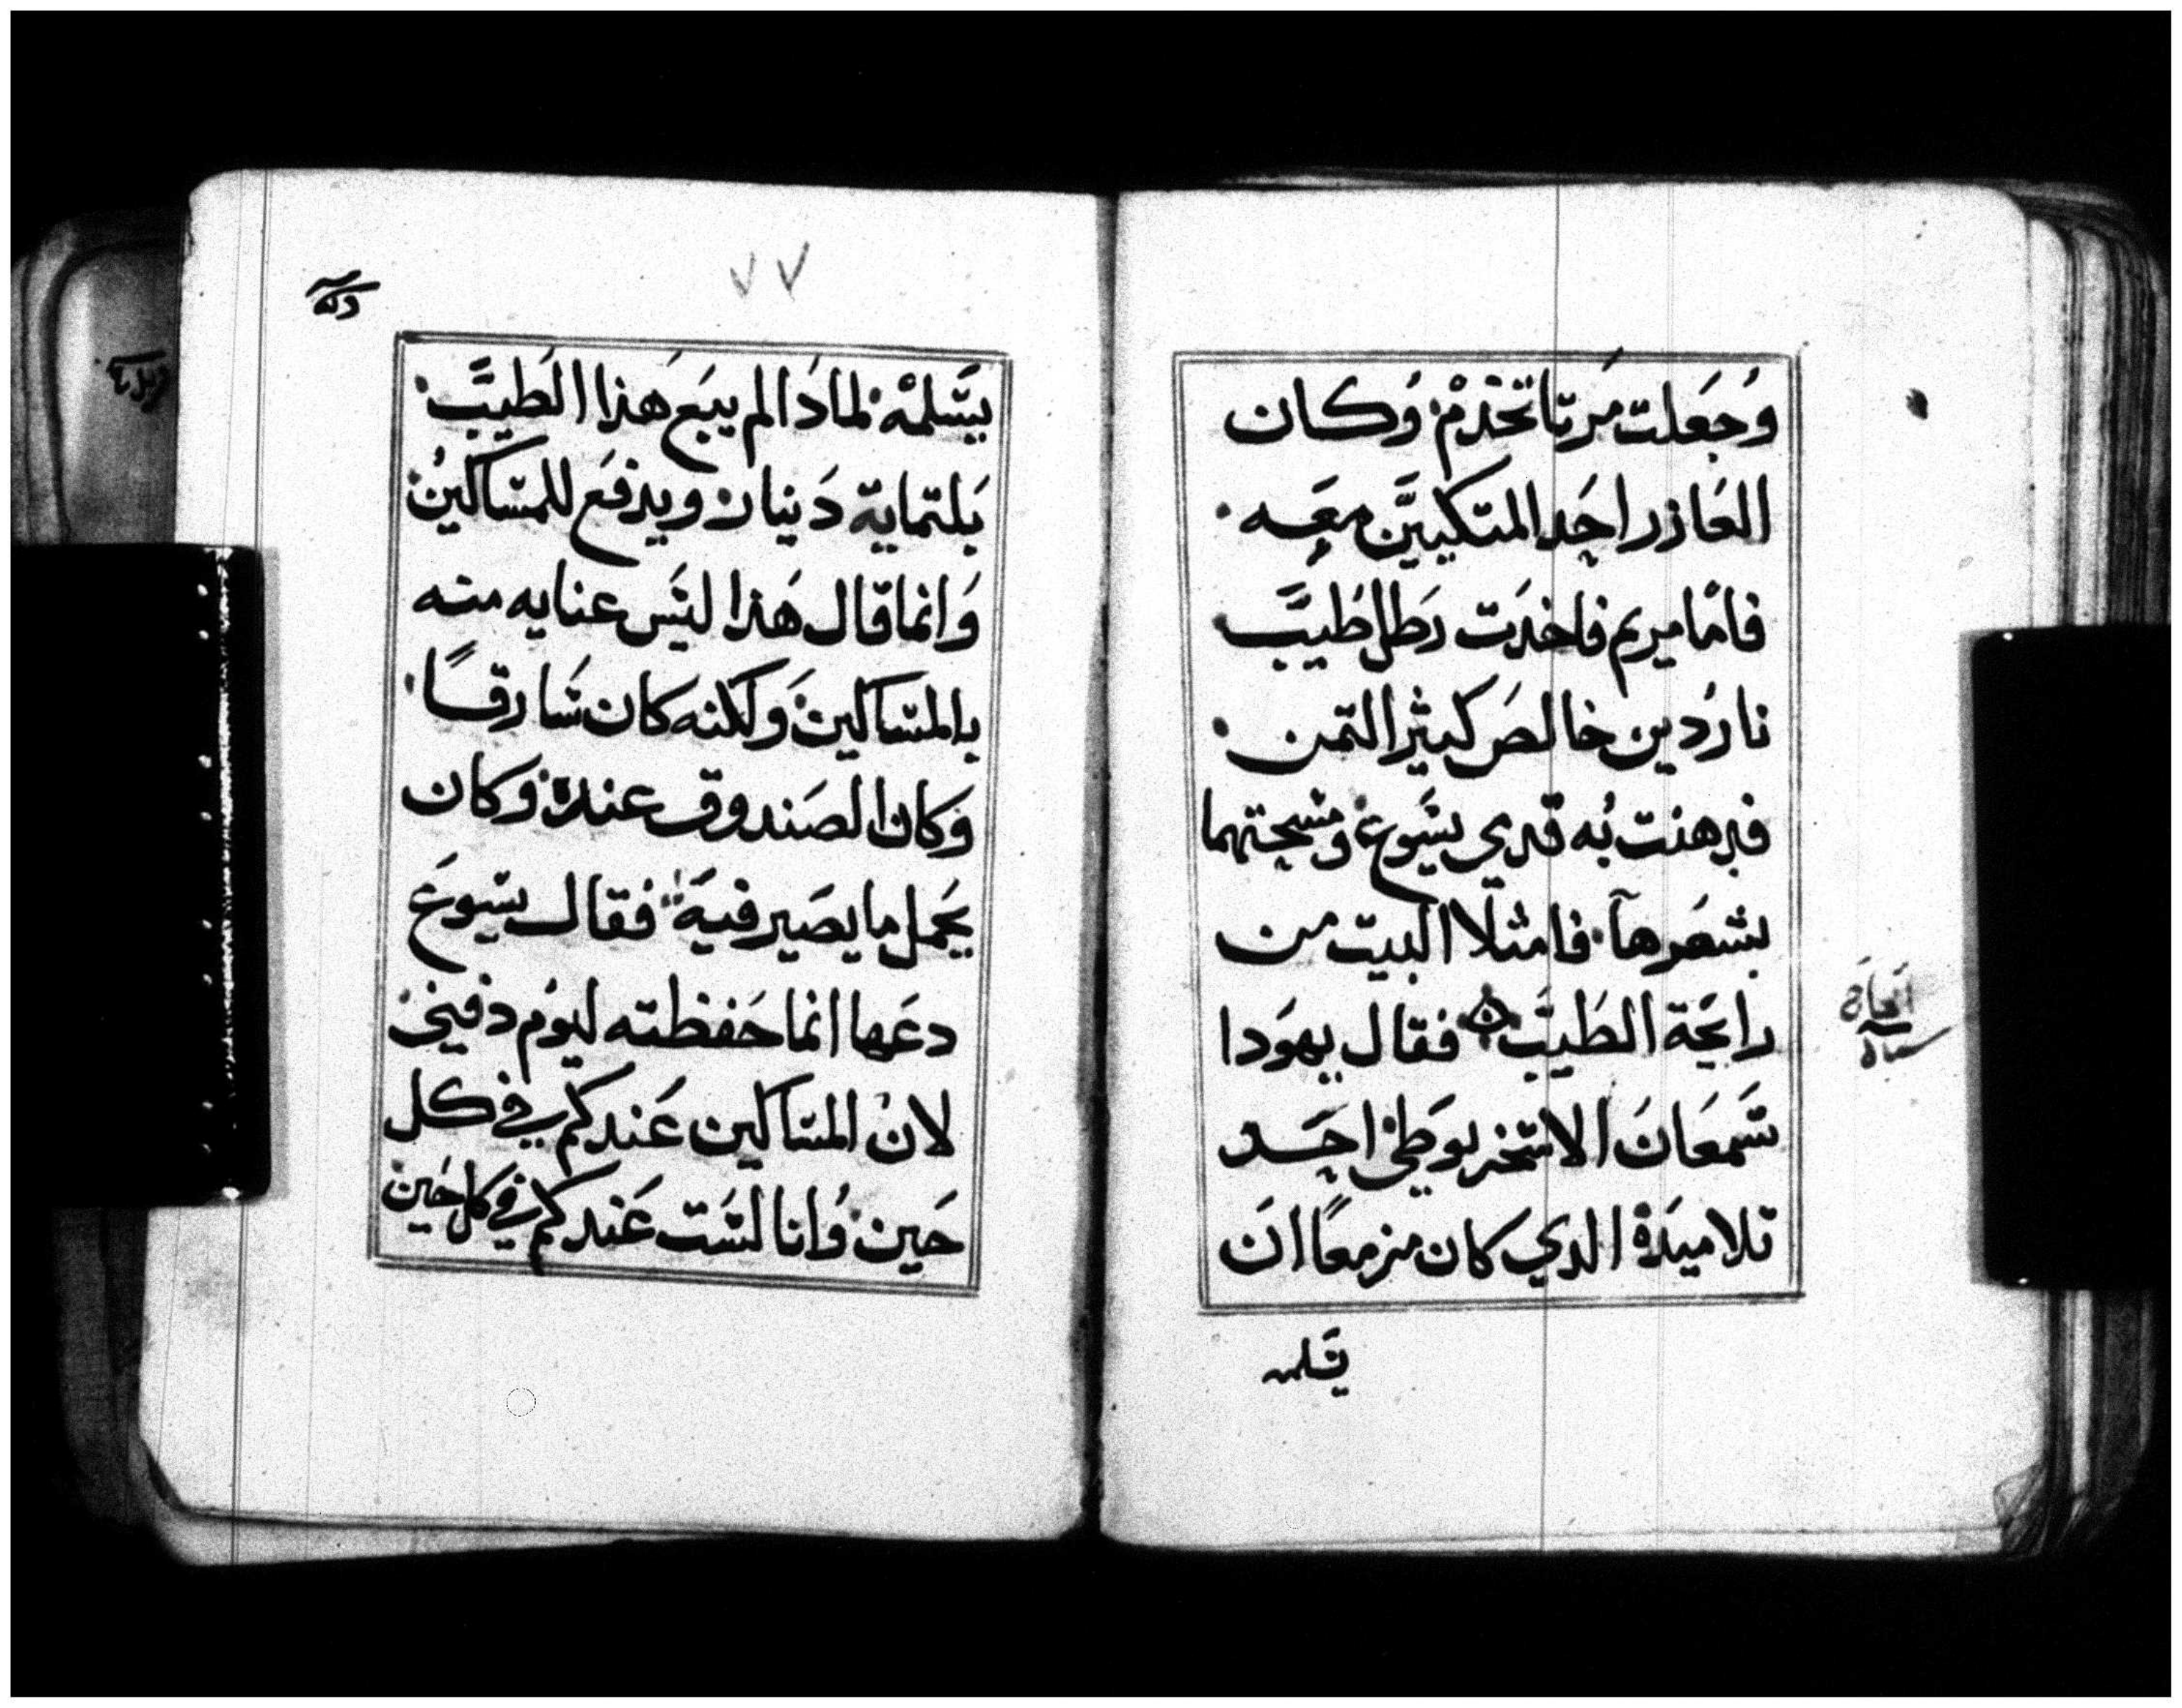 وجعلت مرتا تخدم وكان
العازر احد المتكيين معه
فاما مريم فاخدت رطل طيب
ناردين خالص كثير التمن
فدهنت به قدمي يسوع ومسحتهما
بشعرها فامتلا البيت من
رايحة الطيب فقال يهودا
سمعان الاسخريوطي احد
تلاميده الدي كان مزمعا ان
يسلمه
٧٧
يسلمه لمادا لم يبع هذا الطيب
بلتماية دينار ويدفع للمساكين
وانما قال هذا ليس عنايه منه
بالمساكين ولكنه كان سارقا
وكان الصندوق عنده وكان
يحمل ما يصير فيه فقال يسوع
دعها انما حفظته ليوم دفني
لان المساكين عندكم في كل
حين وانا لست عندكم في كل حين